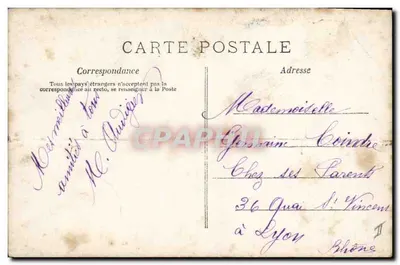 CARTE POSTALE
Correspondance
Tous les pays étrangers n'acceptent pas la
correspondance au recto, se renseigner à la Poste
Adresse
Mes meilleures
amitiés à tous
M.
Mademoiselle
Germaine Coindre
Chez ses Parents
36 Quai St Vincent
à Lyon
Rhône
II
CARTORUM